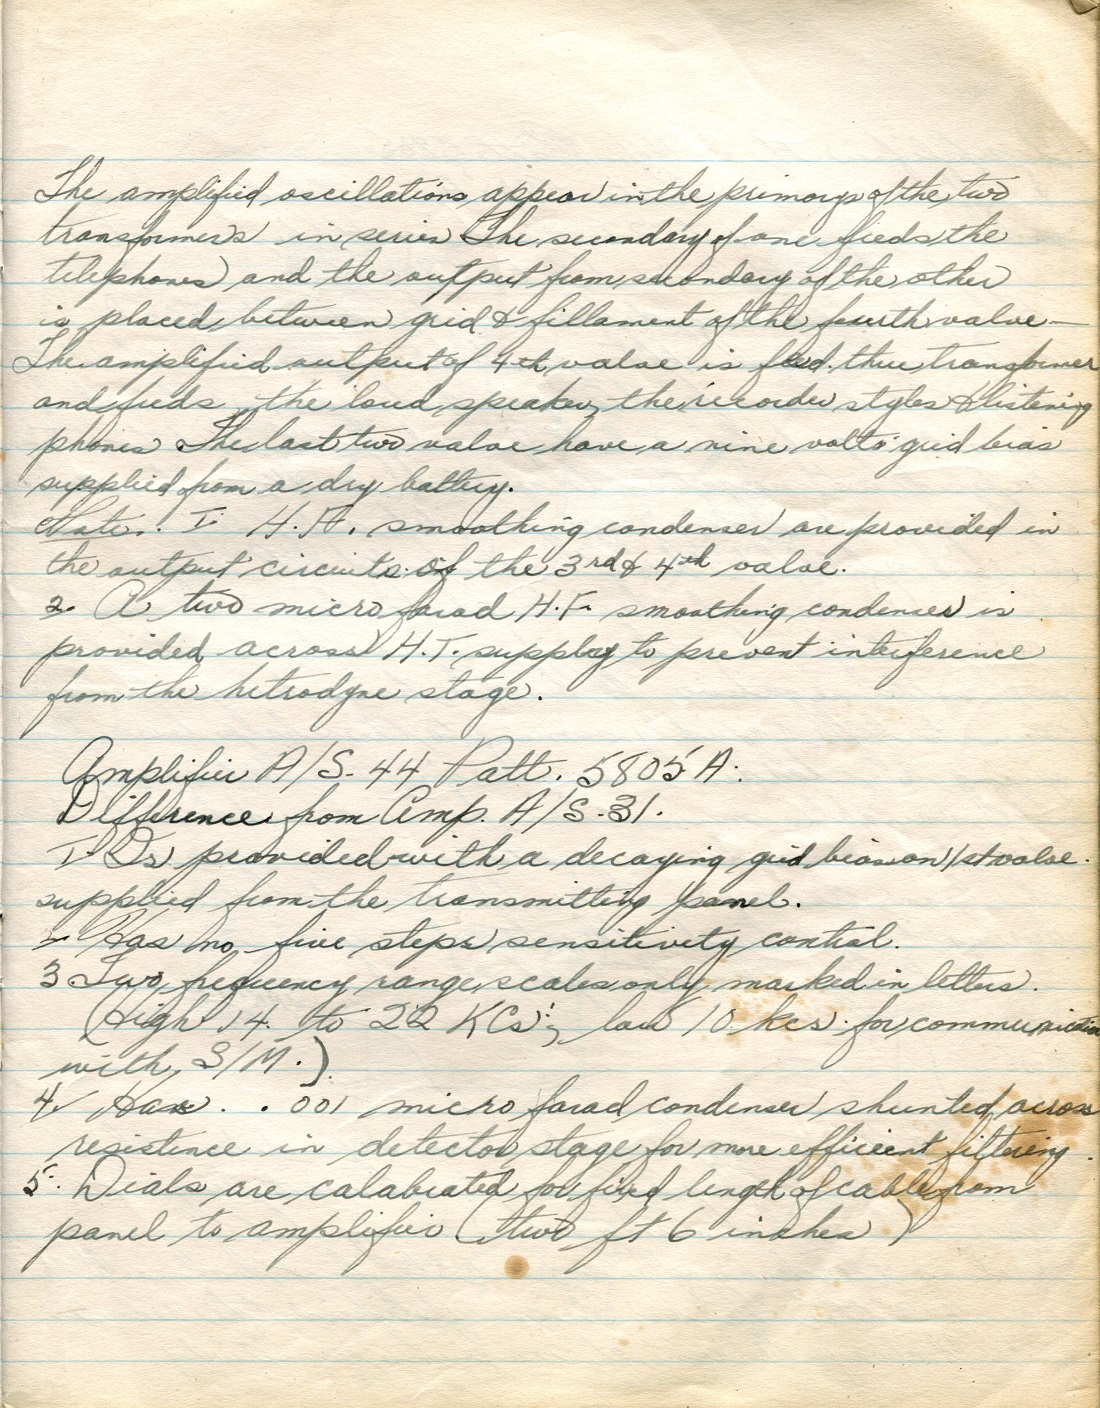 The amplified oscillations appear in the primorys of the two
transformers in series The secondary of one feeds the
telephones and the output from secondary of the other
is placed between grid & fillament of the fourth valve —
The amplified output of 4th valve is fed thru transformer
and feeds the loud speaker, the recorder styles & listening
phones The last two valve have a nine volts grid bias
supplied from a dry battery.
Note. 1. H.F. smoothing condenser are provided in
the output circuits of the 3rd & 4th valve.
2. A two micro farad H.F. smoothing condenser is
provided across H.T. supply to prevent interference
from the hetrodyne stage.
Amplifier A/S. 44 Patt. 5805 A.
Difference from Amp. A/S. 31.
1. Is provided with a decaying grid bias on 1st valve.
supplied from the transmitting panel.
2. Has no five steps sensitivity control.
3 Two frequency range scales only marked in letters.
(High 14. to 22 KCs; low 10 kcs. for communication
with S/M.)
4. Has . .001 micro farad condenser shunted across
resistence in detector stage for more efficient filtering.
5. Dials are calabrated for fixed length of cable from
panel to amplifier (two ft 6 inches)